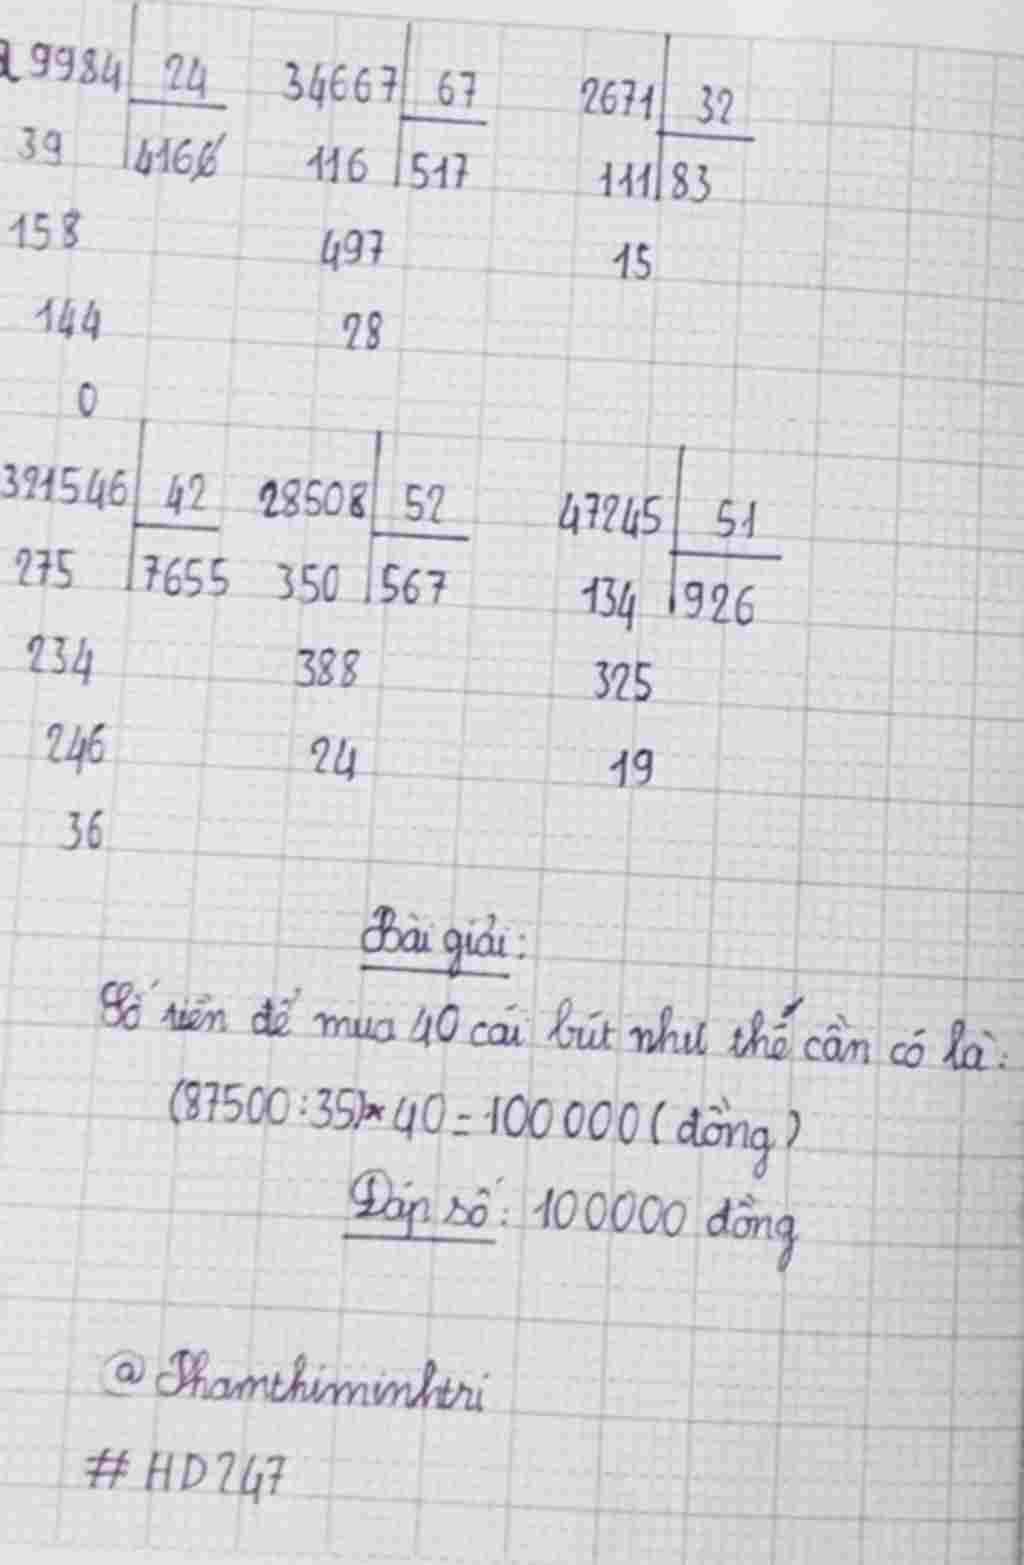 29984 24 34667 67 2671 32
39 4166 116 517 111 83
158 497 15
144 28
0
321546 42 28508 52 47245 51
275 7655 350 567 134 926
234 388 325
246 24 19
36
Bài giải:
Số tiền để mua 40 cái bút như thế cần có là:
(87500:35)×40=100000(đồng)
Đáp số: 100000 đồng
@Phamthiminhtri
#HD247